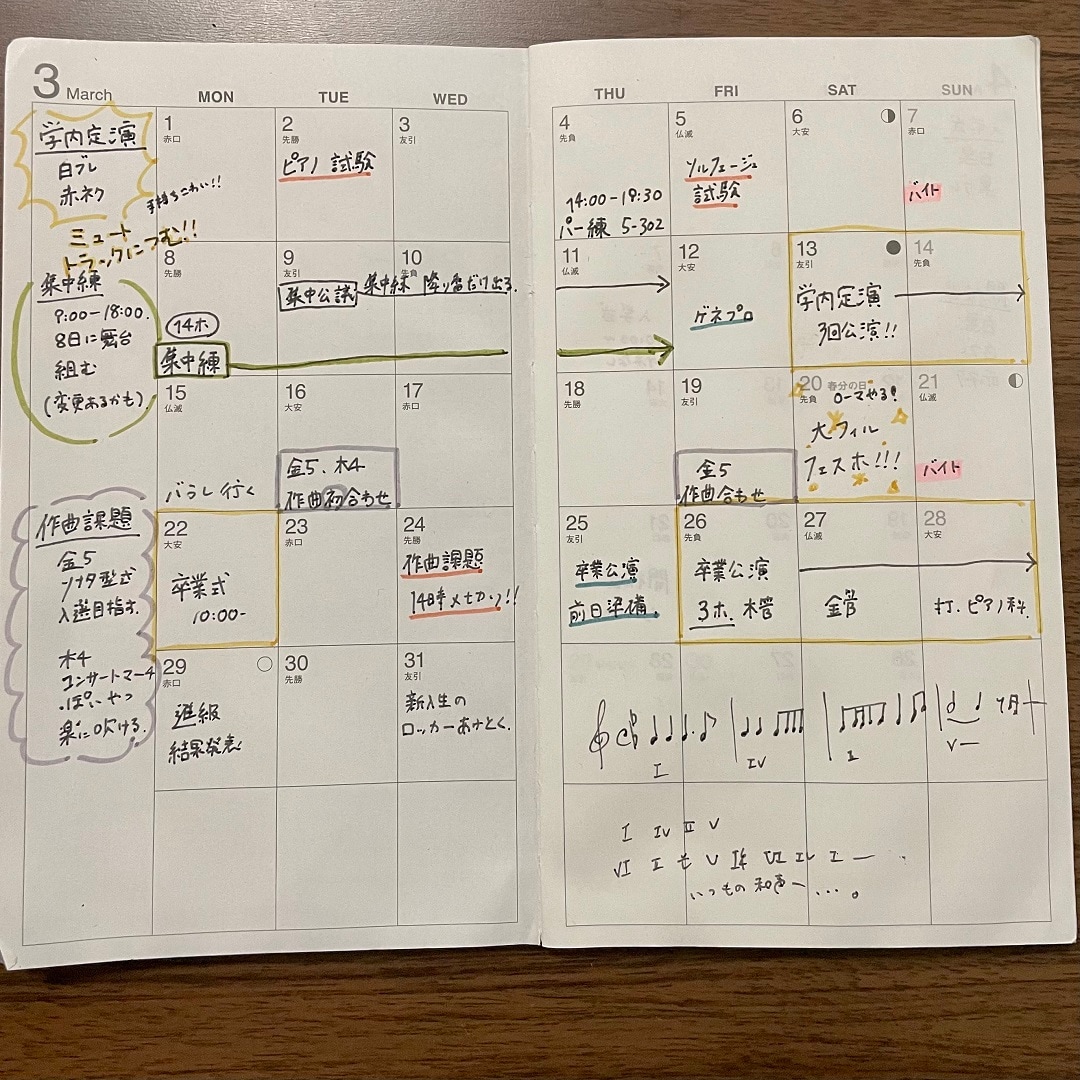 3 March
MON TUE WED THU FRI SAT SUN
学内定演
白ブレ
赤ネク
手持ちこわい!!
ミュート
トラックにつむ!!
集中練
9:00-18:00.
8日に舞台
組む
(変更あるかも).
作曲課題
金5
ソナタ型式
入選目指す.
木4
コンサートマーチ
っぽいやつ
楽に吹ける.
1
赤口
2
先勝
ピアノ 試験
3
友引
4
先負
14:00-19:30
パー練 5-302
5
仏滅
ソルフェージュ
試験
6
大安
7
赤口
バイト
8
先勝
14ホ
集中練
9
友引
集中公議
10
先負
集中練 降り番だけ出る.
11
仏滅
12
大安
ゲネプロ
13
友引
学内定演
3回公演!!
14
先負
15
仏滅
バラし 行く
16
大安
金5、木4
作曲初合わせ
17
赤口
18
先勝
19
友引
金5
作曲合わせ
20 春分の日
先負
ローマやる!
大フィル
フェスホ!!!
21
仏滅
バイト
22
大安
卒業式
10:00-
23
赤口
24
先勝
作曲課題
14時〆切り!!
25
友引
卒業公演
前日準備.
26
先負
卒業公演
3ホ. 木管
27
仏滅
金管
28
大安
打、ピアノ科.
29
赤口
進級
結果発表
30
先勝
31
友引
新入生の
ロッカーあけとく.
I IV I V
I IV II V
いつもの 和声ー….。